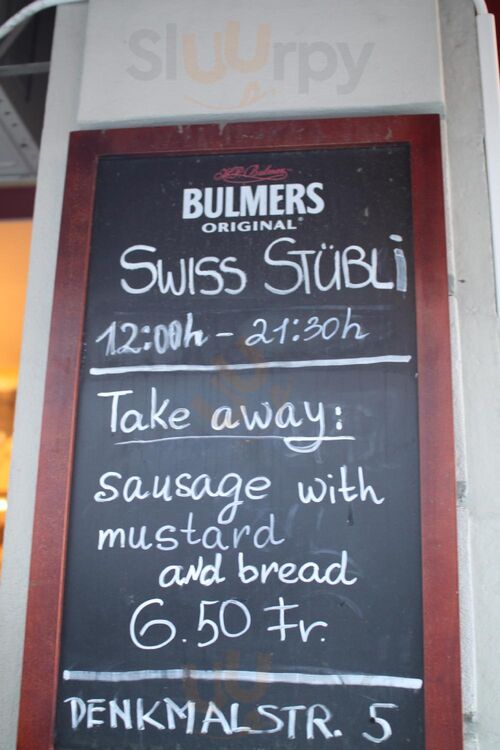 Sluurpy
H.P. Bulmer
BULMERS
ORIGINAL
SWISS STÜBLi
12:00h - 21:30h
Take away:
sausage with
mustard
and bread
6.50 Fr.
DENKMALSTR. 5